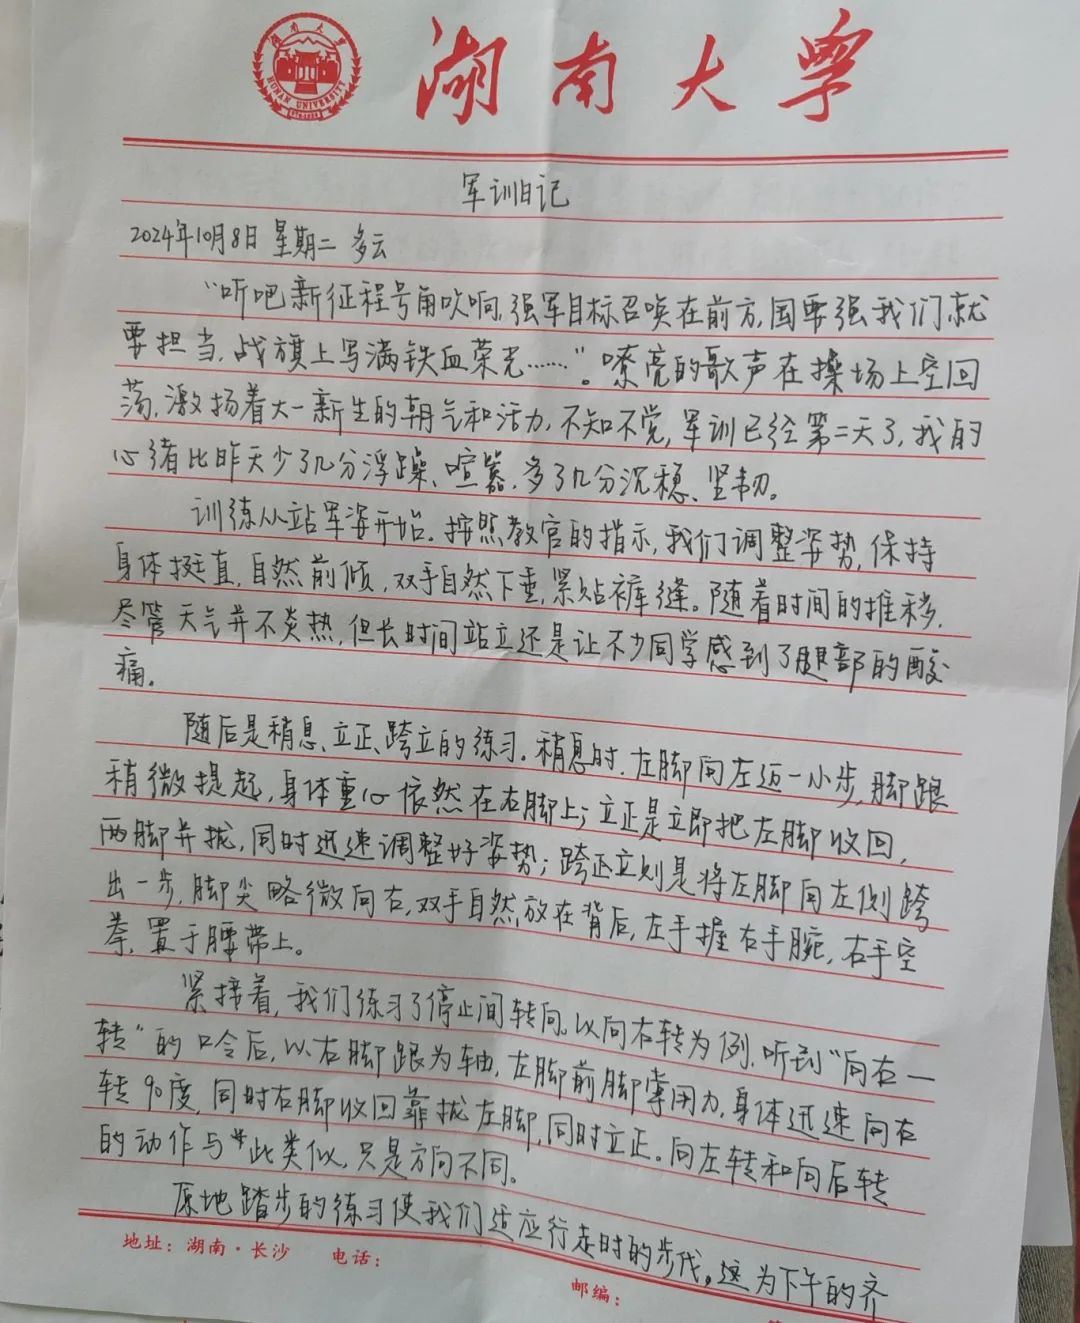 湖南大学
HUNAN UNIVERSITY
军训日记
2024年10月8日 星期二 多云
“听吧新征程号角吹响,强军目标召唤在前方,国要强我们就
要担当,战旗上写满铁血荣光……”。嘹亮的歌声在操场上空回
荡,激扬着大一新生的朝气和活力,不知不觉,军训已经第二天了,我的
心绪比昨天少了几分浮躁、喧嚣,多了几分沉稳、坚韧。
训练从站军姿开始。按照教官的指示,我们调整姿势,保持
身体挺直,自然前倾,双手自然下垂,紧贴裤缝。随着时间的推移,
尽管天气并不炎热,但长时间站立还是让不少同学感到了腿部的酸
痛。
随后是稍息、立正、跨立的练习。稍息时,左脚向左迈一小步,脚跟
稍微提起,身体重心依然在右脚上;立正是立即把左脚收回,
两脚并拢,同时迅速调整好姿势;跨立则是将左脚向左侧跨
出一步,脚尖略微向右,双手自然放在背后,左手握右手腕,右手空
拳,置于腰带上。
紧接着,我们练习了停止间转向。以向右转为例,听到“向右一
转”的口令后,以右脚跟为轴,左脚前脚掌用力,身体迅速向右
转90度,同时右脚收回靠拢左脚,同时立正。向左转和向后转
的动作与此类似,只是方向不同。
原地踏步的练习使我们适应行走时的步伐。这为下午的齐
地址:湖南·长沙 电话:
邮编: